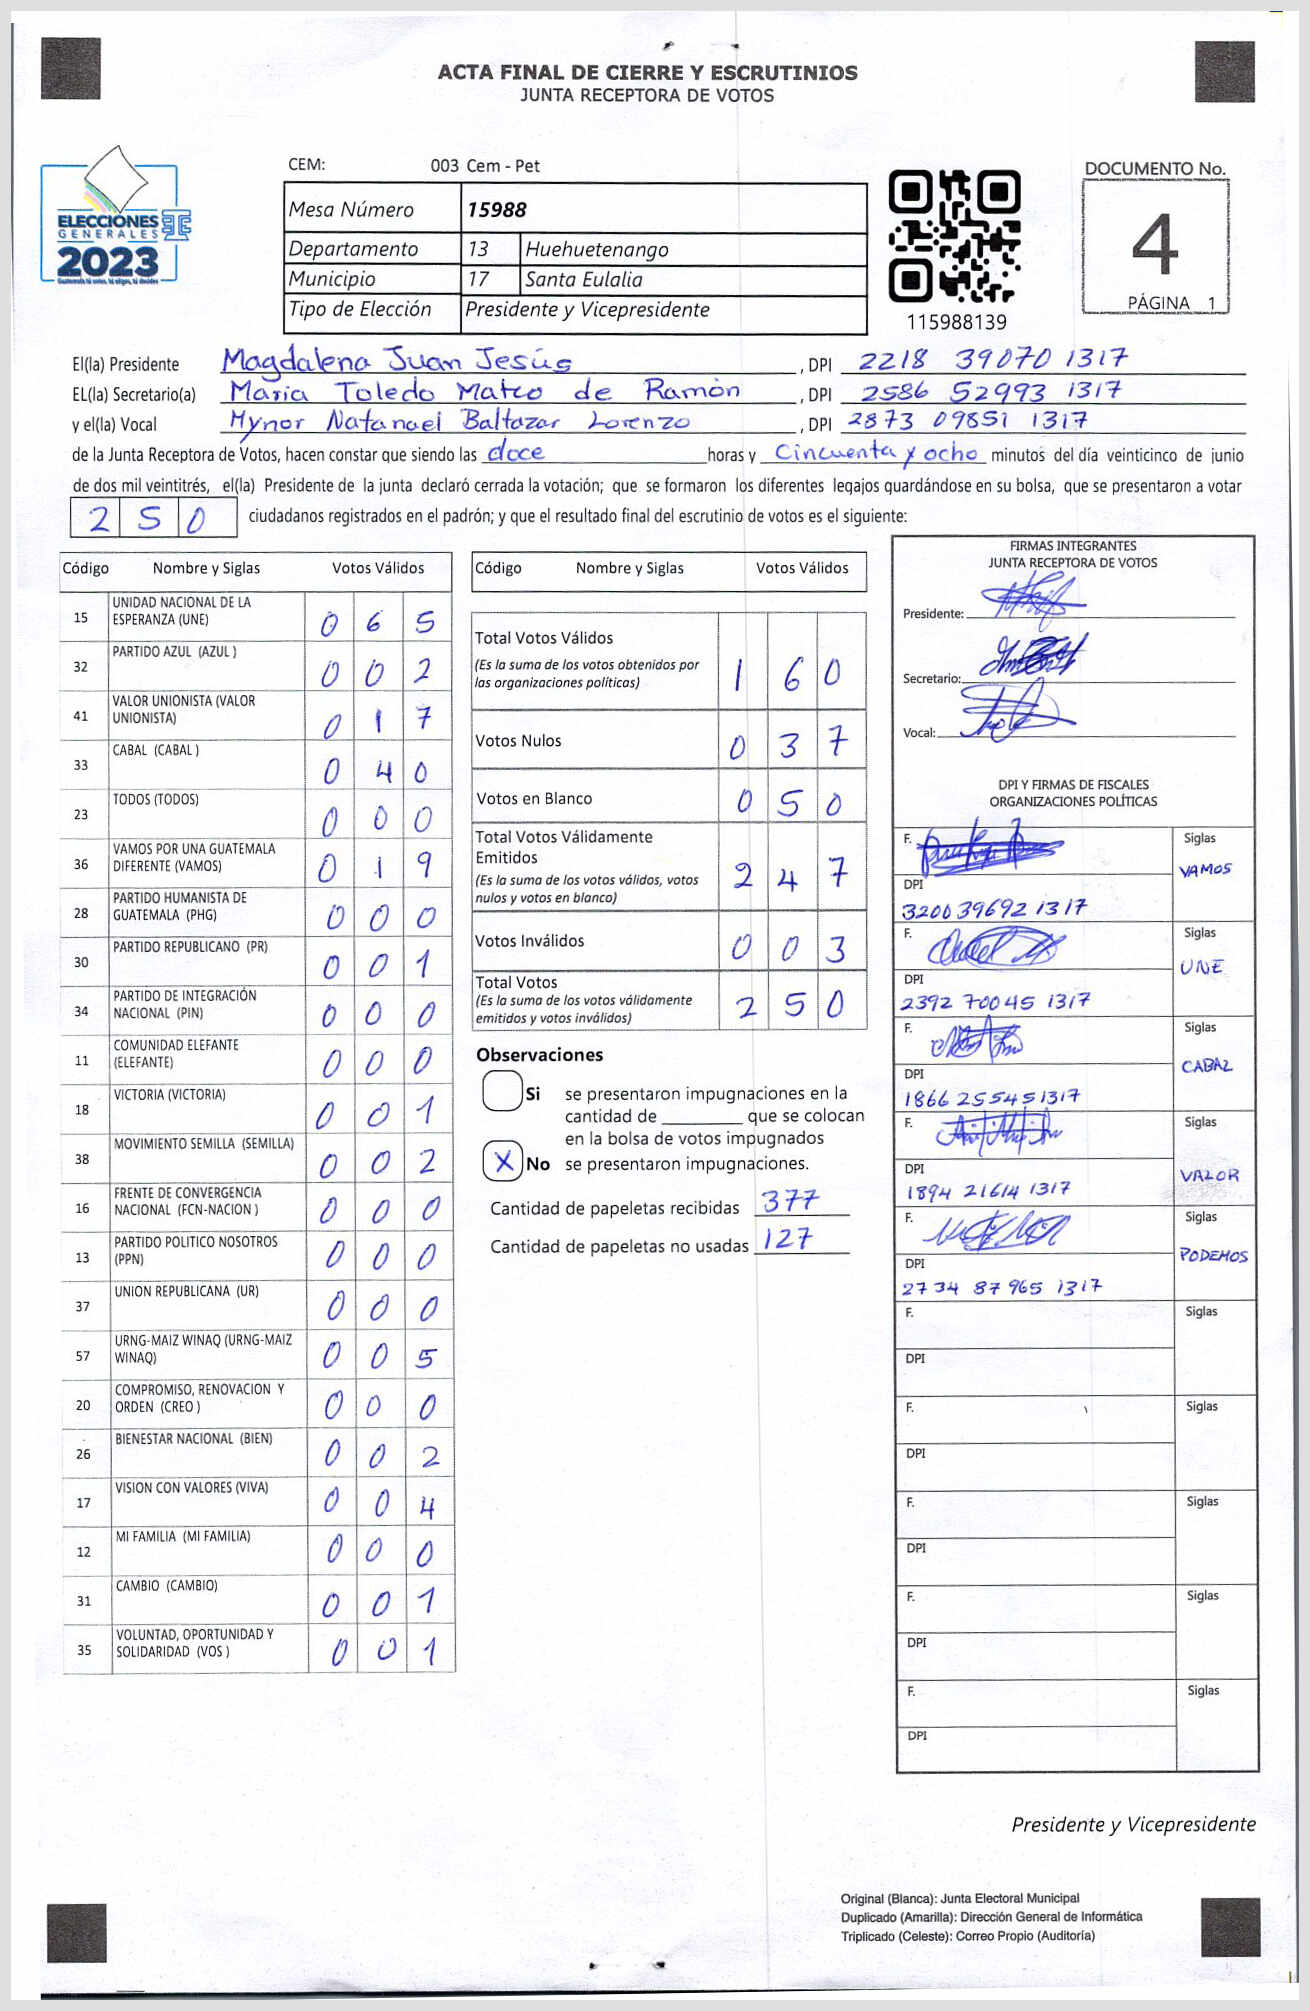 ACTA FINAL DE CIERRE Y ESCRUTINIOS
JUNTA RECEPTORA DE VOTOS
ELECCIONES
GENERALES
2023
CEM: 003 Cem - Pet
Mesa Número 15988
Departamento 13 Huehuetenango
Municipio 17 Santa Eulalia
Tipo de Elección Presidente y Vicepresidente
115988139
DOCUMENTO No.
4
PÁGINA 1
El(la) Presidente Magdalena Juan Jesús, DPI 2218 39070 1317
EL(la) Secretario(a) Maria Toledo Mateo de Ramón, DPI 2586 52993 1317
y el(la) Vocal Mynor Natanael Baltazar Lorenzo, DPI 2873 09851 1317
de la Junta Receptora de Votos, hacen constar que siendo las doce horas y Cincuenta y ocho minutos del día veinticinco de junio
de dos mil veintitrés, el(la) Presidente de la junta declaró cerrada la votación; que se formaron los diferentes legajos guardándose en su bolsa, que se presentaron a votar
250 ciudadanos registrados en el padrón; y que el resultado final del escrutinio de votos es el siguiente:
Código Nombre y Siglas Votos Válidos
15 UNIDAD NACIONAL DE LA ESPERANZA (UNE) 0 6 5
32 PARTIDO AZUL (AZUL ) 0 0 2
41 VALOR UNIONISTA (VALOR UNIONISTA) 0 1 7
33 CABAL (CABAL ) 0 4 0
23 TODOS (TODOS) 0 0 0
36 VAMOS POR UNA GUATEMALA DIFERENTE (VAMOS) 0 1 9
28 PARTIDO HUMANISTA DE GUATEMALA (PHG) 0 0 0
30 PARTIDO REPUBLICANO (PR) 0 0 1
34 PARTIDO DE INTEGRACIÓN NACIONAL (PIN) 0 0 0
11 COMUNIDAD ELEFANTE (ELEFANTE) 0 0 0
18 VICTORIA (VICTORIA) 0 0 1
38 MOVIMIENTO SEMILLA (SEMILLA) 0 0 2
16 FRENTE DE CONVERGENCIA NACIONAL (FCN-NACION ) 0 0 0
13 PARTIDO POLITICO NOSOTROS (PPN) 0 0 0
37 UNION REPUBLICANA (UR) 0 0 0
57 URNG-MAIZ WINAQ (URNG-MAIZ WINAQ) 0 0 5
20 COMPROMISO, RENOVACION Y ORDEN (CREO ) 0 0 0
26 BIENESTAR NACIONAL (BIEN) 0 0 2
17 VISION CON VALORES (VIVA) 0 0 4
12 MI FAMILIA (MI FAMILIA) 0 0 0
31 CAMBIO (CAMBIO) 0 0 1
35 VOLUNTAD, OPORTUNIDAD Y SOLIDARIDAD (VOS ) 0 0 1
Código Nombre y Siglas Votos Válidos
Total Votos Válidos 1 6 0
(Es la suma de los votos obtenidos por
las organizaciones políticas)
Votos Nulos 0 3 7
Votos en Blanco 0 5 0
Total Votos Válidamente
Emitidos 2 4 7
(Es la suma de los votos válidos, votos
nulos y votos en blanco)
Votos Inválidos 0 0 3
Total Votos 2 5 0
(Es la suma de los votos válidamente
emitidos y votos inválidos)
Observaciones
Si se presentaron impugnaciones en la
cantidad de ________ que se colocan
en la bolsa de votos impugnados
X No se presentaron impugnaciones.
Cantidad de papeletas recibidas 377
Cantidad de papeletas no usadas 127
FIRMAS INTEGRANTES
JUNTA RECEPTORA DE VOTOS
Presidente:
Secretario:
Vocal:
DPI Y FIRMAS DE FISCALES
ORGANIZACIONES POLÍTICAS
F. Siglas VAMOS
DPI 32003969213​17
F. Siglas UNE
DPI 2392 70045 1317
F. Siglas CABAL
DPI 1866 25545 1317
F. Siglas VALOR
DPI 1894 21614 1317
F. Siglas PODEMOS
DPI 2734 87965 1317
F. Siglas
DPI
F. Siglas
DPI
F. Siglas
DPI
F. Siglas
DPI
F. Siglas
DPI
Presidente y Vicepresidente
Original (Blanca): Junta Electoral Municipal
Duplicado (Amarilla): Dirección General de Informática
Triplicado (Celeste): Correo Propio (Auditoría)